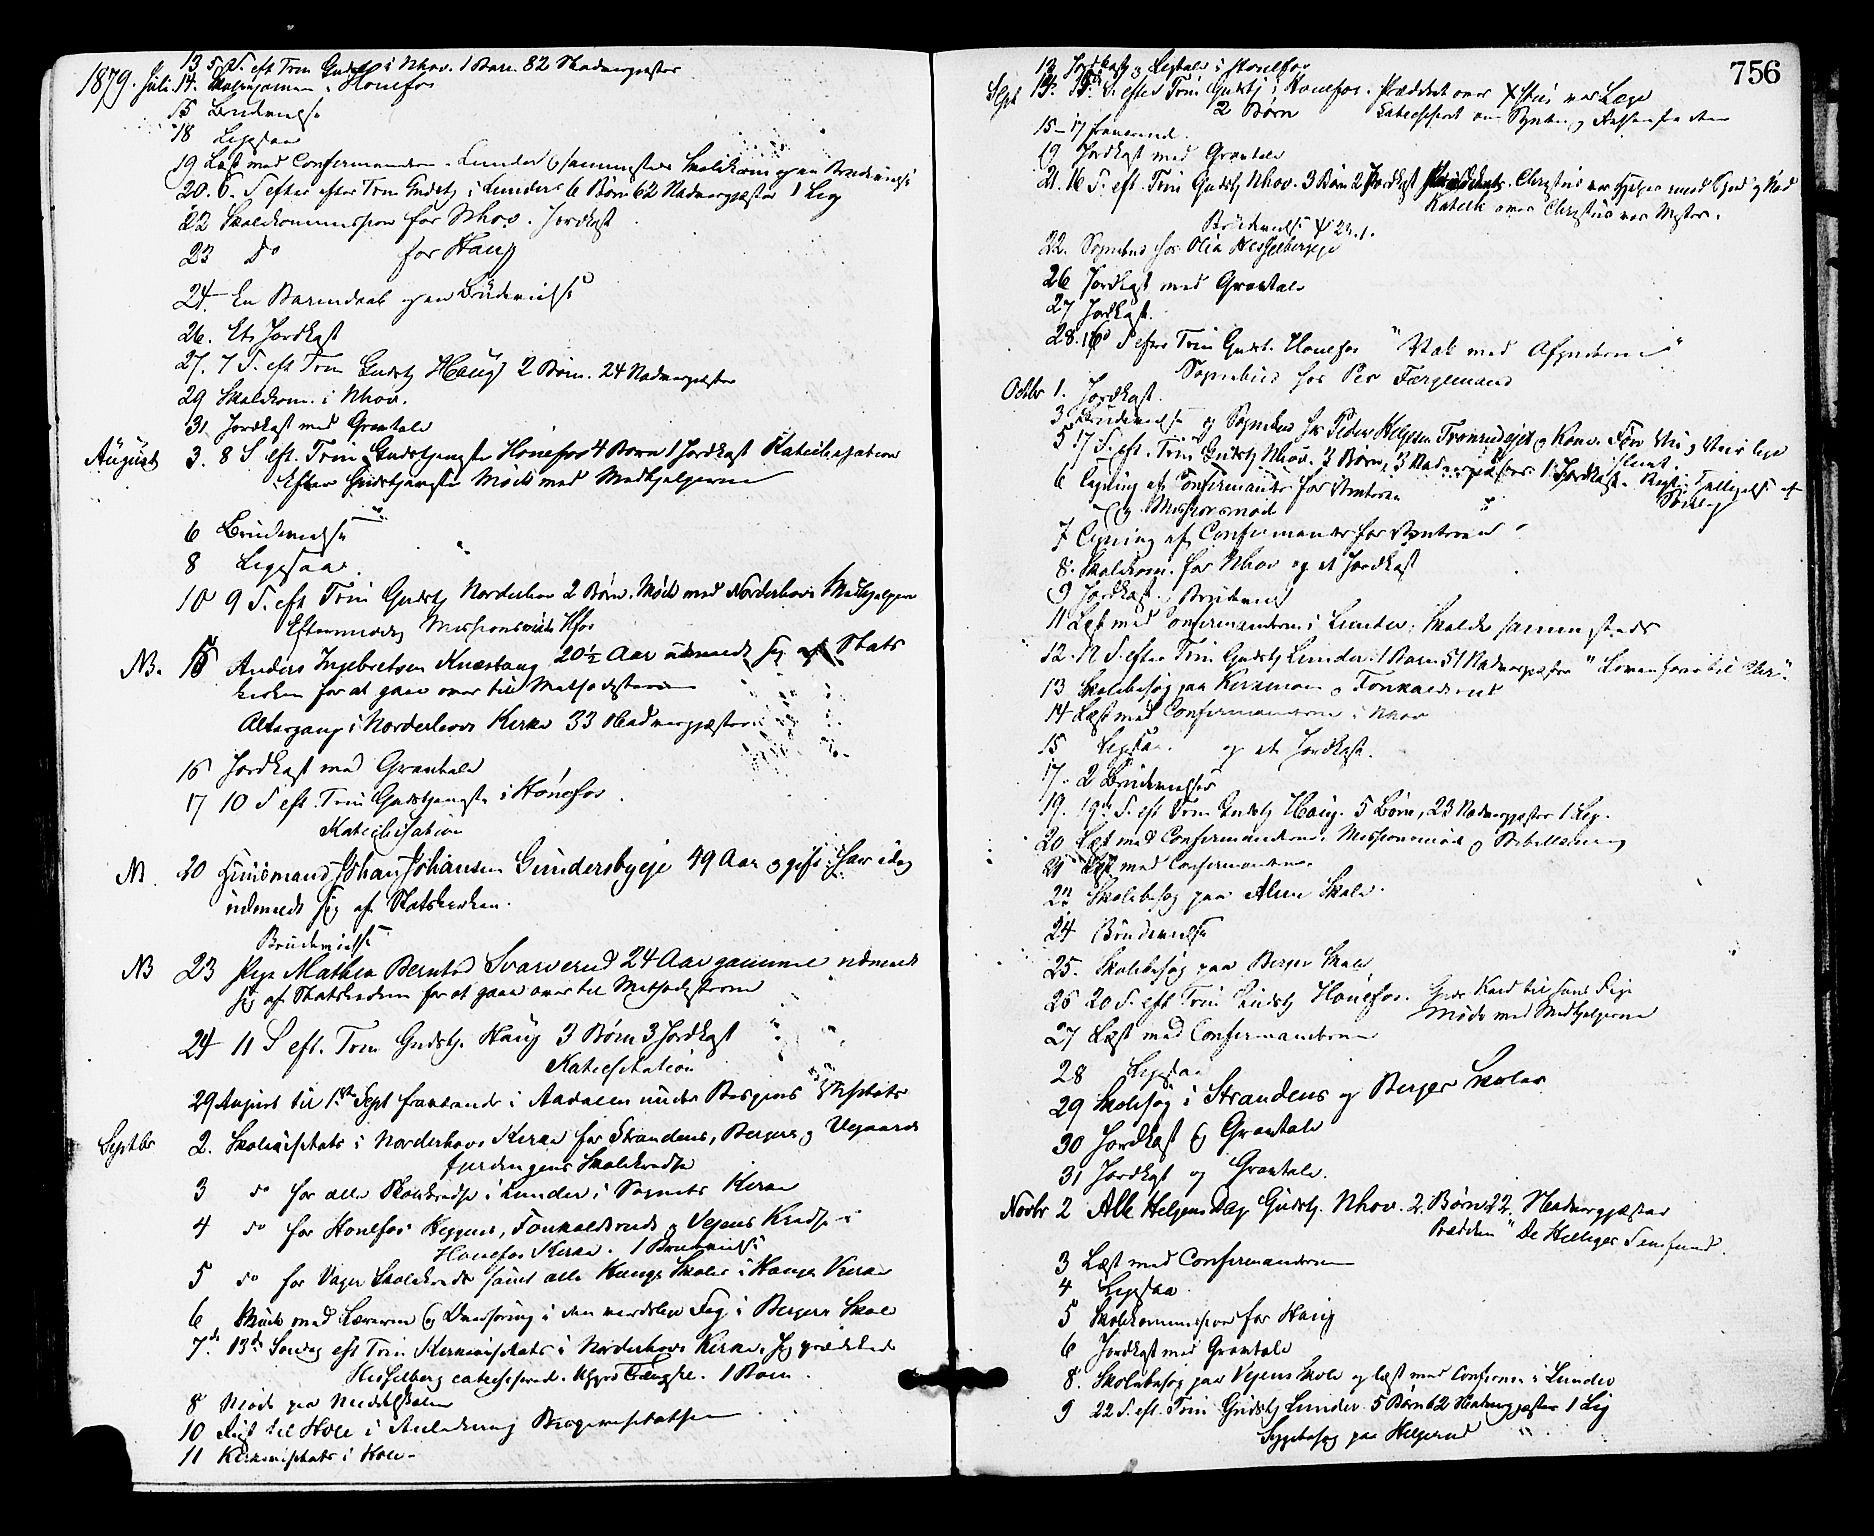 13 5 S. eft Trin Gudstj i Nhov. 1 Barn 82 Nadvergjester
1879. Juli 14. Skolexamen i Honefos
15 Brudevielse
18 Ligesaa
19 Læst med Confirmanderne i Lunder og sammesteds Skolekom og en Brudevielse
20. 6. S eft Trin Gudstj i Lunder 6 Børn 62 Nadvergjester 1 Lig
22 Skolekommission for Nhov. Jordkast
23 Do for Haug
24. En Barnedaab og en Brudevielse
26. Et Jordkast
27. 7 S. eft Trin Gudstj Haug 2 Børn. 24 Nadvergjester
29 Skolekom. i Nhov.
31 Jordkast med Gravtale
August 3. 8 S eft. Trin Gudstjeneste Honefos 4 Børn 1 Jordkast Katechisation
Efter Gudstjeneste Møde med Medhjelperne
6 Brudevielse
8 Ligesaa.
10 9 S. eft Trin Gudstj Norderhov 2 Børn. Møde med Norderhovs Medhjelpere
Eftermiddag Missionsmøde Hfos
NB. 15 Anders Ingebretsen Knestang 20½ Aar udmeldt sig af Stats
kirken for at gaa over til Methodisterne
Altergang i Norderhovs Kirke 33 Nadvergjester
16 Jordkast med Gravtale
17 10 S eft. Trin Gudstjeneste i Hönefos
Katechisation
N. 20 Huusmand Johan Johansen Gundersbyeje 49 Aar og gift har idag
udmeldt sig af Statskirken.
Brudevielse
NB 23 Pige Mathea Berntsd Svarverud 24 Aar gammel udmeldt
sig af Statskirken for at gaa over til Methodisterne
24 11 S eft. Trin Gudstj. Haug 3 Børn 3 Jordkast
Katechisation
29 August til 1ste Sept fraværende i Aadalen under Bispens Visitats
Septbr 2. Skolevisitats i Norderhovs Kirke for Strandens, Bergers og Vegaards
fjerdingens Skolekredse
3 do for alle Skolekredse i Lunder i Sognets Kirke
4 do for Honefos Heggens, Tonkaldsruds og Vejens Kredse i
Honefos Kirke. 1 Brudevielse
5 do for Vager Skolekreds samt alle Haugs Skoler i Haugs Kirke
6 Møde med Lærerne og i den verdslige Fag i Bergers Skole
7de 13de Søndag eft Trin Kirkevisitats i Norderhovs Kirke. Jeg prædikede
Hesselberg catechiserede. 1 Barn.
8 Møde paa Middelskolen
10 Rejst til Hole i Anledning Bispevisitatsen
11 Kirkevisitats i Hole.
756
13 Jordkast og Ligtale i Honefos
Sept 14. 14. S. efter Trin Gudstj i Honefos. Prædiket over Xstus vor Læge
2 Børn Katechiseret om Synden og
15–17 fraværende.
19 Jordkast med Gravtale
21. 16 S. eft. Trin Gudstj Nhov. 3 Børn 2 Jordkast Christus vor Hjelper mod Synd og Nød
Katech over Christus vor Mester.
Brudevielse
22. Sognebud hos Olia Hesselbergeje
26 Jordkast med Gravtale
27 Jordkast.
28. 16 S efter Trin Gudst. Honefos "Væk med Afguderne"
Sognebud hos Per Færgemand
Octbr 1. Jordkast.
3 Brudevielse og Sognebud hos Peder Helgesen Tronrudejet og Kone.
5 17 S. eft. Trin Gudstj Nhov. 3 Børn, 3 Nadvergjester 1 Jordkast.
6 Tegning af Confirmander for Vinteren
og Missionsmøde
7 Tegning af Confirmander for Vinteren
8. Skolekom. for Nhov og et Jordkast
9 Jordkast. Brudeviel
11 Læst med Confirmanderne i Lunder. Skolekom sammesteds
12. 18 S. efter Trin Gudstj Lunder. 1 Barn 51 Nadvergjester
13 Skolebesøg paa Kirkemoen og Tonkaldsrud
14 Læst med Confirmanderne i Nhov
15 Ligesaa. og et Jordkast.
17. 2 Brudevielser
19. 19de S. eft Trin Gudstj Haug. 5 Børn, 23 Nadvergjester 1 Lig.
20 Læst med Confirmanderne. Missionsmøde og Bibellæsning
21 Læst med Confirmanderne
22 Skolebesøg paa Alme Skole.
24 Brudevielse
25. Skolebesøg paa Berger Skole
26 20 S. eft Trin Gudstj Honefos.
Møde med Medhjelperne
27 Læst med Confirmanderne
28 Ligesaa
29 Skolebesøg i Strandens og Berger Skoler
30 Jordkast og Gravtale
31 Jordkast og Gravtale.
Novbr 2 Alle Helgens Dag Gudstj. Nhov. 2 Børn 22. Nadvergjester
Prædiken "De Helliges Samfund.
3 Læst med Confirmanderne
4 Ligesaa
5 Skolekommission for Haug
6 Jordkast med Gravtale
8. Skolebesøg paa Vejens Skole og læst med Confirm. i Lunder
9 22 S. eft. Trin Gudstj Lunder 5 Børn 62 Nadvergjester 1 Lig
Sygebesøg paa Helgerud